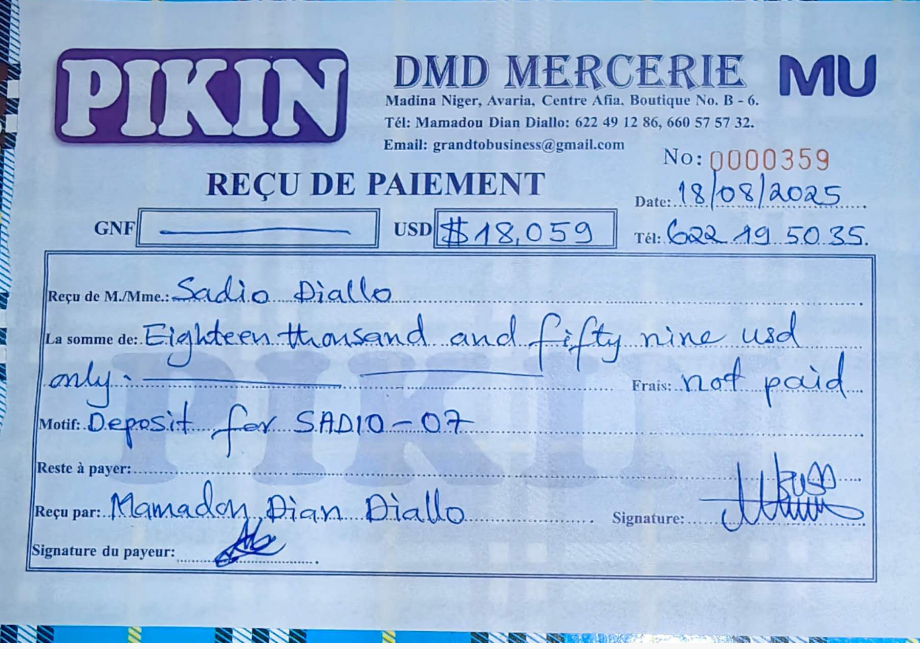 PIKIN
DMD MERCERIE
MU
Madina Niger, Avaria, Centre Afia, Boutique No. B - 6.
Tél: Mamadou Dian Diallo: 622 49 12 86, 660 57 57 32.
Email: grandtobusiness@gmail.com
No: 0000359
REÇU DE PAIEMENT
Date: 18/08/2025
GNF USD $18,059
Tél: 622 19 50 35.
Reçu de M./Mme.: Sadio Diallo
La somme de: Eighteen thousand and fifty nine usd
only: Frais: not paid
Motif: Deposit for SADIO-07
Reste à payer:
Reçu par: Mamadou Dian Diallo Signature:
Signature du payeur:
PIKIN